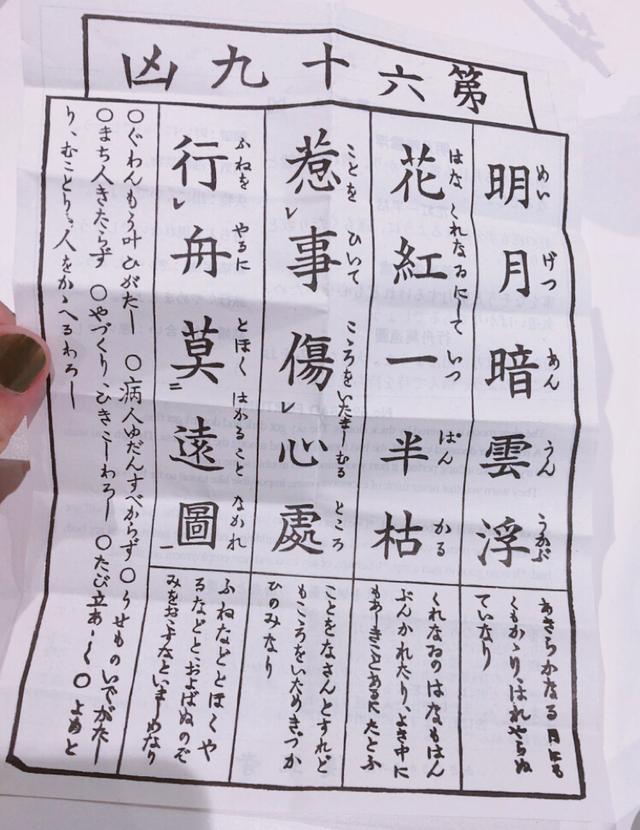 第六十九凶
めい げつ あん うん うかぶ
明月暗雲浮
あきらかなる月にも
くもかゝり、はれやらぬ
ていなり
はな くれなゐにして いつ ぱん かる
花紅一半枯
くれなゐのはなもはん
ぶんかれたり、よき中に
もあしきことあるにたとふ
ことを ひいて こころをいたましむる ところ
惹レ事傷レ心處
ことをなさんとすれど
もこころをいためきづか
ひのみなり
ふねを やるに とほく はかること なかれ
行レ舟莫二遠圖一
ふねなどとほくや
るなどとおよばぬのぞ
みをおこすなといましめなり
○ぐわんもう叶ひがたし ○病人ゆだんすべからず ○うせものいでがたし
○まち人きたらず ○やづくり、ひきこしわろし ○たび立あしく ○よめと
り、むことり、人をかゝへるわろし